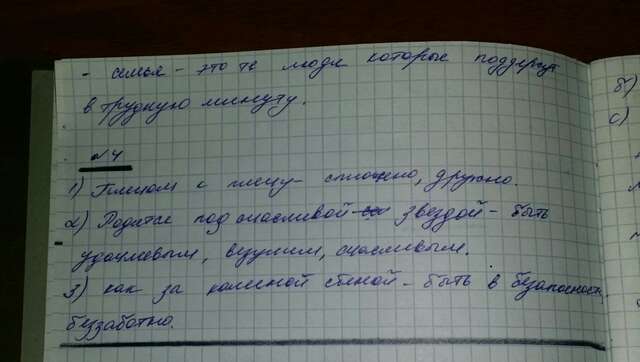 - семья - это те люди которые поддержут
в трудную минуту.
№4
1) Плечом к плечу - сплочено, дружно.
2) Родится под счасливой звездой - быть
удачливым, везучим, счасливым.
3) как за каменой стеной - быть в безопасности,
беззаботно.
б)
с)